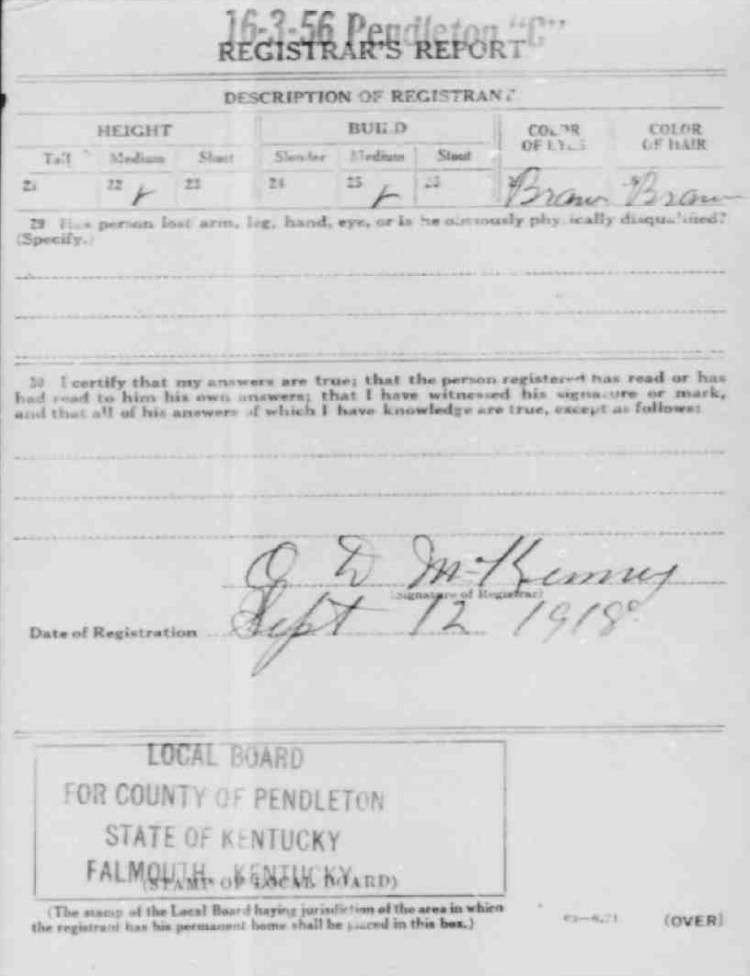 16-3-56 Pendleton "C"
REGISTRAR'S REPORT
DESCRIPTION OF REGISTRANT
HEIGHT BUILD COLOR OF EYES COLOR OF HAIR
Tall Medium Short Slender Medium Stout
21 22 ✓ 23 24 25 ✓ 26 Brown Brown
29 Has person lost arm, leg, hand, eye, or is he obviously physically disqualified?
(Specify.)
30 I certify that my answers are true; that the person registered has read or has
had read to him his own answers; that I have witnessed his signature or mark,
and that all of his answers of which I have knowledge are true, except as follows:
O D McKenney
(Signature of Registrar)
Date of Registration Sept 12 1918
LOCAL BOARD
FOR COUNTY OF PENDLETON
STATE OF KENTUCKY
FALMOUTH, KENTUCKY
(STAMP OF LOCAL BOARD)
(The stamp of the Local Board having jurisdiction of the area in which
the registrant has his permanent home shall be placed in this box.)
(OVER)